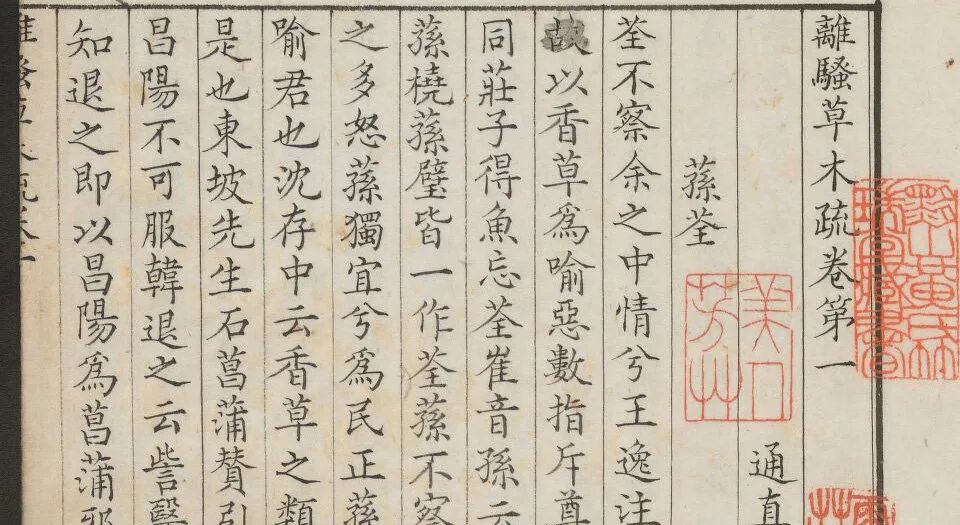 離騷草木疏卷第一
通直
蓀荃
荃不察余之中情兮王逸注
故以香草爲喻惡數指斥尊
同莊子得魚忘荃崔音孫云
蓀橈蓀壁皆一作荃蓀不察
之多怒蓀獨宜兮爲民正蓀
喻君也沈存中云香草之類
是也東坡先生石菖蒲贊引
昌陽不可服韓退之云訾醫
知退之即以昌陽爲菖蒲邪